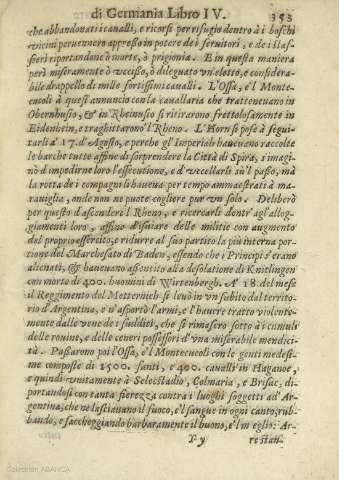 di Germania Libro IV. 353
che abbandonati i caualli, e ricorsi per rifugio dentro à i boschi
vicini peruennero appresso in potere de i seruitori, e de i lassi
sferi riportandone ò morte, ò prigionia. E in questa maniera
però miseramente ò vcciso, ò dileguato vn'eletto, e considera-
bile drappello di mille fortissimi caualli. L'Ossa, e'l Monte-
cucoli à quest'annuncio con la cauallaria che tratteneuano in
Obernhusio, & in Rheinusio si ritirarono frettolosamente in
Eidenhein, e traghittarono'l Rheno. L'Horn si pose à segui-
tarli a' 17. d'Agosto, e perche gl'Imperiali haueuano raccolte
le barche tutte affine di sorprendere la Città di Spira, s'imagi-
nò d'impedirne loro l'essecutione, e d'vccellarli su'l passo, mà
la rotta de i compagni li haueua per tempo ammaestrati à ma-
rauiglia, onde non ne puote cogliere pur vn solo. Deliberò
per questo d'ascendere'l Rheno, e ricercarli dentr'agl'allog-
giamenti loro, affine di suiare delle militie con augumento
del proprio essercito, e ridurre al suo partito la più interna por-
tione del Marchesato di Baden, essendo che i Principi s'erano
alienati, & haueuano assentito alla desolatione di Knitlingen
con morte di 400. huomini di Wirtenbergh. A' 18. del mese
il Reggimento del Metternich si leuò in vn subito dal territo-
rio d'Argentina, e n'asportò l'armi, e l'hauere tratto violente-
mente dalle vene de i sudditi, che si rimasero sotto à i cumuli
delle rouine, e delle ceneri possessori d'vna miserabile mendici-
tà. Passarono poi l'Ossa, e'l Montecucoli con le genti medesi-
me composte di 1500. fanti, e 400. caualli in Haganoe,
e quindi vnitamente à Selestladio, Colmaria, e Brisac, di-
portandosi con tanta fierezza contra i luoghi soggetti ad'Ar-
gentina, che ne lasciauano il fuoco, e'l sangue in ogni canto, rub-
bando, e saccheggiando barbaramente il buono, e'l meglio: Ar-
Y y restan-
Colección ABANCA